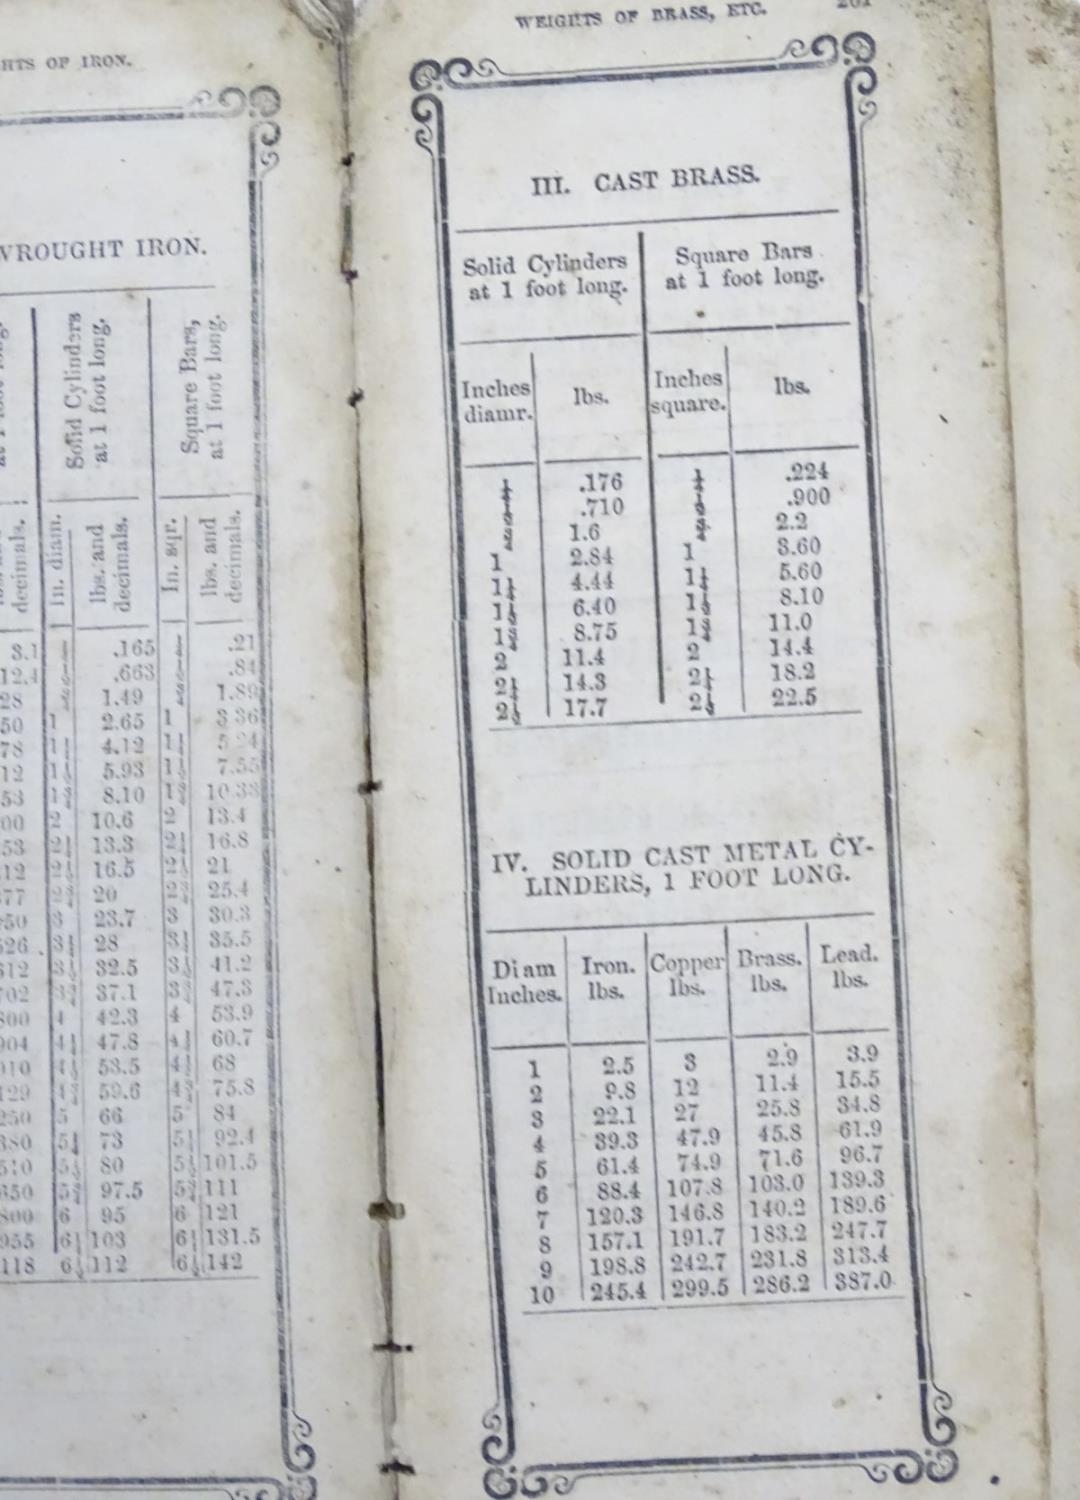 HTS OF IRON.
WROUGHT IRON.
Solid Cylinders
at 1 foot long.
Square Bars,
at 1 foot long.
decimals.
In. diam.
lbs. and
decimals.
In. sqr.
lbs. and
decimals.
3.1 .165 .21
12.4 .663
28 1.49
50 1 2.65 1 3 36
78 4.12
12 5.93 7.55
53 8.10 10.33
00 2 10.6 2 13.4
53 2¼ 13.3 2¼ 16.8
112 2½ 16.5 2½ 21
377 2¾ 20 2¾ 25.4
450 3 23.7 3 30.3
526 3¼ 28 3¼ 35.5
612 3½ 32.5 3½ 41.2
702 3¾ 37.1 3¾ 47.3
800 4 42.3 4 53.9
904 4¼ 47.8 4¼ 60.7
010 4½ 53.5 4½ 68
129 4¾ 59.6 4¾ 75.8
250 5 66 5 84
380 5¼ 73 5¼ 92.4
510 5½ 80 5½ 101.5
650 5¾ 97.5 5¾ 111
800 6 95 6 121
955 6¼ 103 6¼ 131.5
118 6½ 112 6½ 142
WEIGHTS OF BRASS, ETC.
III. CAST BRASS.
Solid Cylinders
at 1 foot long.
Square Bars
at 1 foot long.
Inches
diamr.
lbs.
Inches
square.
lbs.
¼ .176 ¼ .224
½ .710 ½ .900
¾ 1.6 ¾ 2.2
1 2.84 1 3.60
1¼ 4.44 1¼ 5.60
1½ 6.40 1½ 8.10
1¾ 8.75 1¾ 11.0
2 11.4 2 14.4
2¼ 14.3 2¼ 18.2
2½ 17.7 2½ 22.5
IV. SOLID CAST METAL CY-
LINDERS, 1 FOOT LONG.
Diam Iron. Copper Brass. Lead.
Inches. lbs. lbs. lbs. lbs.
1 2.5 3 2.9 3.9
2 9.8 12 11.4 15.5
3 22.1 27 25.8 34.8
4 39.3 47.9 45.8 61.9
5 61.4 74.9 71.6 96.7
6 88.4 107.8 103.0 139.3
7 120.3 146.8 140.2 189.6
8 157.1 191.7 183.2 247.7
9 198.8 242.7 231.8 313.4
10 245.4 299.5 286.2 387.0